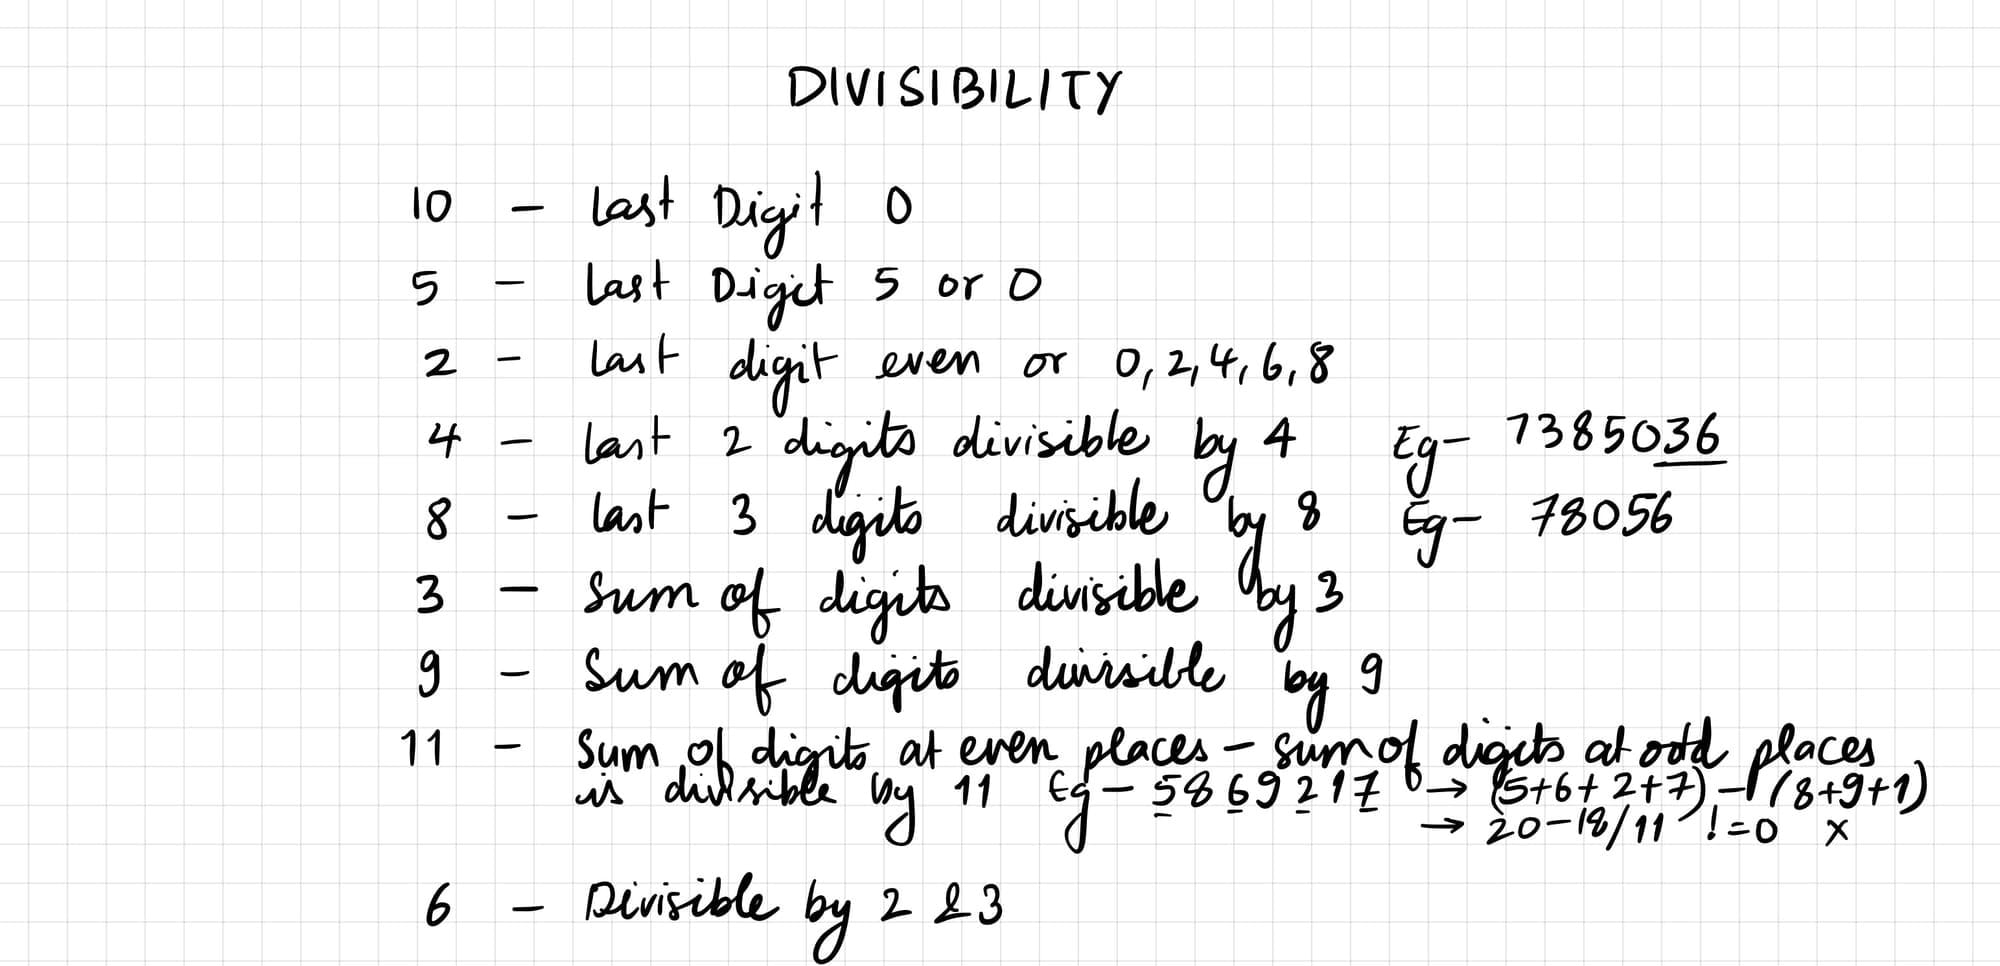 DIVISIBILITY
10 - Last Digit 0
5 - Last Digit 5 or 0
2 - Last digit even or 0, 2, 4, 6, 8
4 - Last 2 digits divisible by 4 Eg- 7385036
8 - Last 3 digits divisible by 8 Eg- 78056
3 - Sum of digits divisible by 3
9 - Sum of digits divisible by 9
11 - Sum of digits at even places - sum of digits at odd places
is divisible by 11 Eg - 5869217 → (5+6+2+7) - (8+9+1)
→ 20-18/11 != 0 x
6 - Divisible by 2 & 3